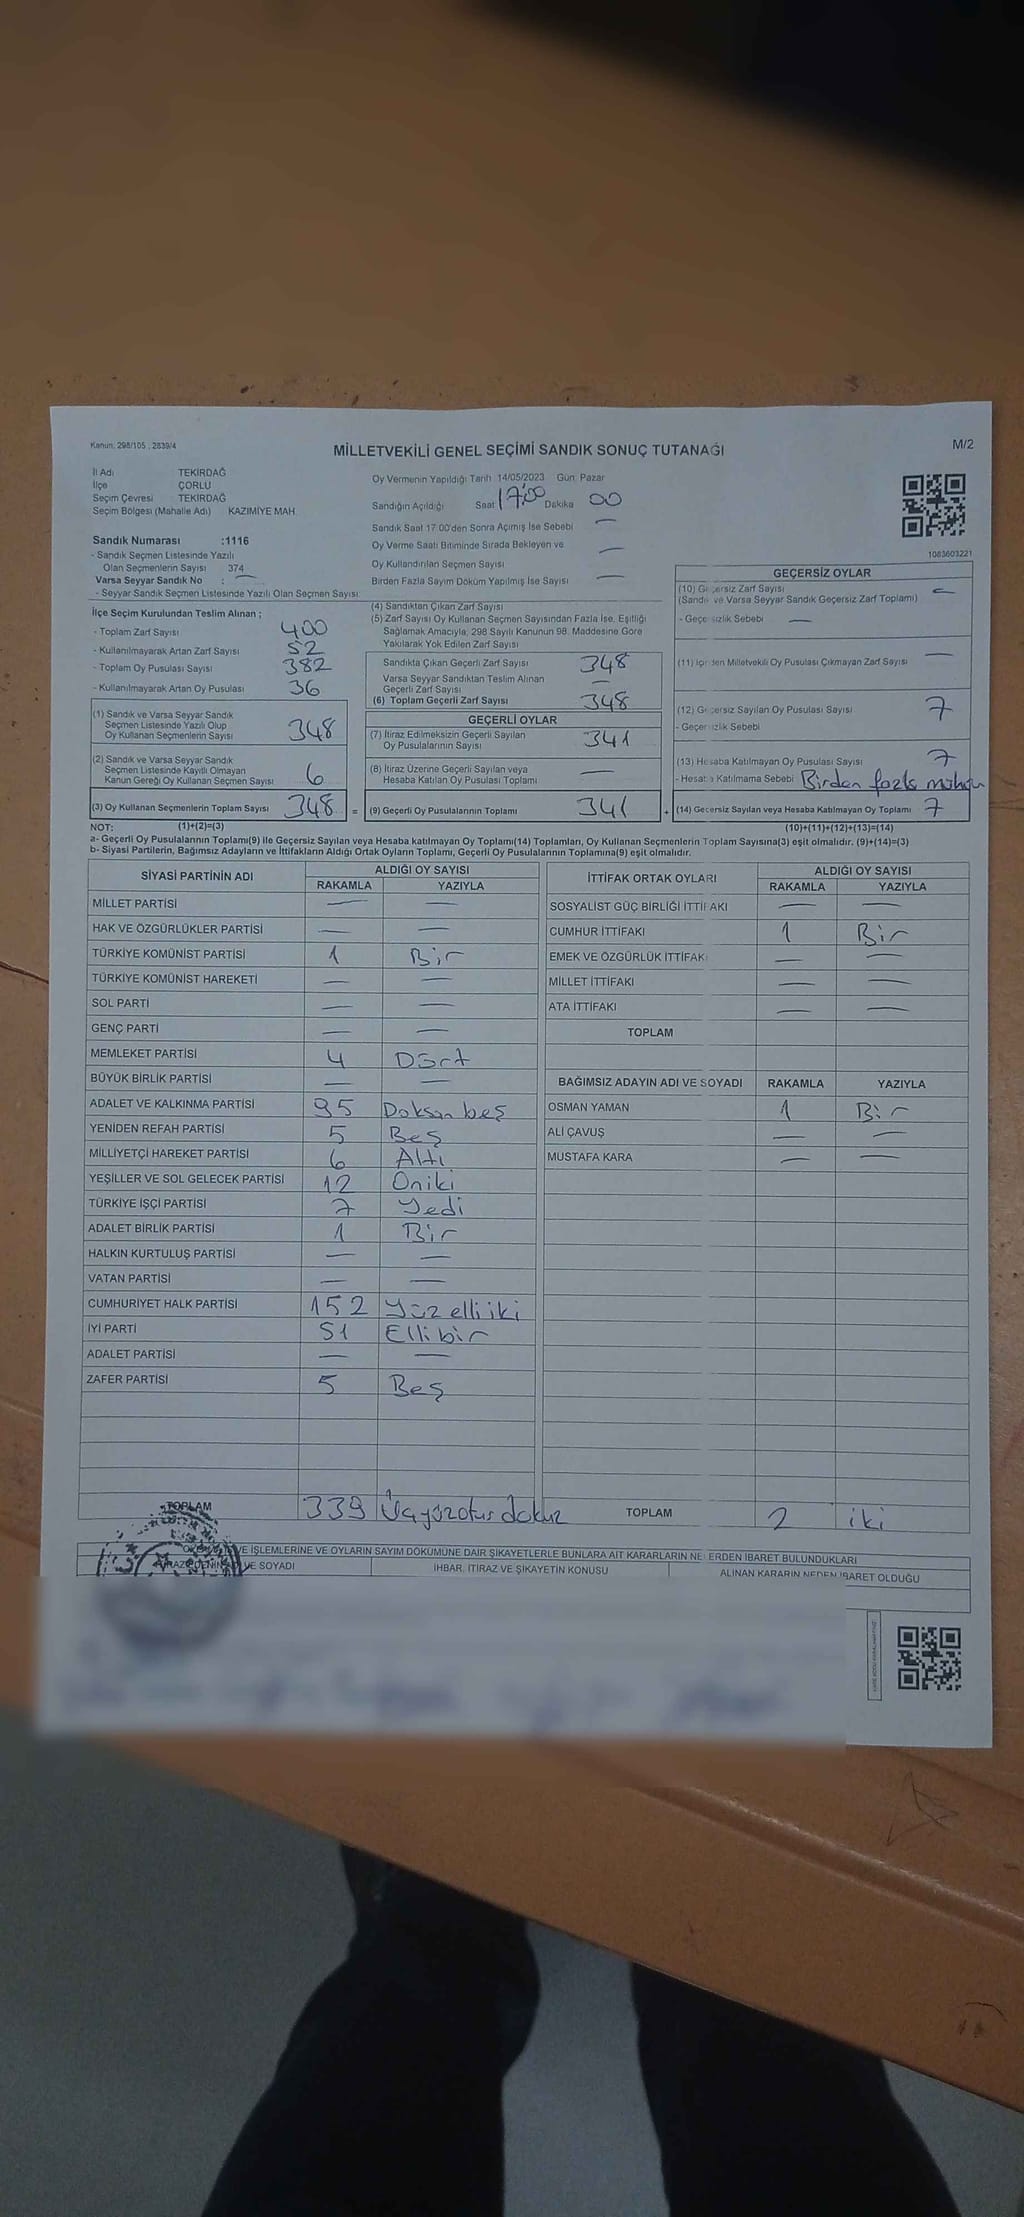 Kanun: 298/105 , 2839/4
MİLLETVEKİLİ GENEL SEÇİMİ SANDIK SONUÇ TUTANAĞI
M/2
İl Adı TEKİRDAĞ
İlçe ÇORLU
Seçim Çevresi TEKİRDAĞ
Seçim Bölgesi (Mahalle Adı) KAZIMİYE MAH.
Oy Vermenin Yapıldığı Tarih 14/05/2023 Gün: Pazar
Sandığın Açıldığı Saat 17:00 Dakika 00
Sandık Saat 17:00'den Sonra Açımış İse Sebebi —
Oy Verme Saati Bitiminde Sırada Bekleyen ve
Oy Kullandırılan Seçmen Sayısı —
Birden Fazla Sayım Döküm Yapılmış İse Sayısı —
1083603221
Sandık Numarası :1116
- Sandık Seçmen Listesinde Yazılı
Olan Seçmenlerin Sayısı 374
Varsa Seyyar Sandık No : —
- Seyyar Sandık Seçmen Listesinde Yazılı Olan Seçmen Sayısı:
İlçe Seçim Kurulundan Teslim Alınan ;
- Toplam Zarf Sayısı 400
- Kullanılmayarak Artan Zarf Sayısı 52
- Toplam Oy Pusulası Sayısı 382
- Kullanılmayarak Artan Oy Pusulası 36
(1) Sandık ve Varsa Seyyar Sandık
Seçmen Listesinde Yazılı Olup
Oy Kullanan Seçmenlerin Sayısı 348
(2) Sandık ve Varsa Seyyar Sandık
Seçmen Listesinde Kayıtlı Olmayan
Kanun Gereği Oy Kullanan Seçmen Sayısı 6
(3) Oy Kullanan Seçmenlerin Toplam Sayısı 348 =
(4) Sandıktan Çıkan Zarf Sayısı
(5) Zarf Sayısı Oy Kullanan Seçmen Sayısından Fazla İse, Eşitliği
Sağlamak Amacıyla; 298 Sayılı Kanunun 98. Maddesine Göre
Yakılarak Yok Edilen Zarf Sayısı
Sandıkta Çıkan Geçerli Zarf Sayısı 348
Varsa Seyyar Sandıktan Teslim Alınan
Geçerli Zarf Sayısı —
(6) Toplam Geçerli Zarf Sayısı 348
GEÇERLİ OYLAR
(7) İtiraz Edilmeksizin Geçerli Sayılan
Oy Pusulalarının Sayısı 341
(8) İtiraz Üzerine Geçerli Sayılan veya
Hesaba Katılan Oy Pusulası Toplamı —
(9) Geçerli Oy Pusulalarının Toplamı 341 +
GEÇERSİZ OYLAR
(10) Geçersiz Zarf Sayısı —
(Sandık ve Varsa Seyyar Sandık Geçersiz Zarf Toplamı)
- Geçersizlik Sebebi —
(11) İçinden Milletvekili Oy Pusulası Çıkmayan Zarf Sayısı —
(12) Geçersiz Sayılan Oy Pusulası Sayısı 7
- Geçersizlik Sebebi
(13) Hesaba Katılmayan Oy Pusulası Sayısı 7
- Hesaba Katılmama Sebebi Birden fazla mühür
(14) Geçersiz Sayılan veya Hesaba Katılmayan Oy Toplamı 7
NOT: (1)+(2)=(3) (10)+(11)+(12)+(13)=(14)
a- Geçerli Oy Pusulalarının Toplamı(9) ile Geçersiz Sayılan veya Hesaba katılmayan Oy Toplamı(14) Toplamları, Oy Kullanan Seçmenlerin Toplam Sayısına(3) eşit olmalıdır. (9)+(14)=(3)
b- Siyasi Partilerin, Bağımsız Adayların ve İttifakların Aldığı Oyların Toplamı, Geçerli Oy Pusulalarının Toplamına(9) eşit olmalıdır.
SİYASİ PARTİNİN ADI ALDIĞI OY SAYISI
RAKAMLA YAZIYLA
MİLLET PARTİSİ — —
HAK VE ÖZGÜRLÜKLER PARTİSİ — —
TÜRKİYE KOMÜNİST PARTİSİ 1 Bir
TÜRKİYE KOMÜNİST HAREKETİ — —
SOL PARTİ — —
GENÇ PARTİ — —
MEMLEKET PARTİSİ 4 Dört
BÜYÜK BİRLİK PARTİSİ — —
ADALET VE KALKINMA PARTİSİ 95 Doksan beş
YENİDEN REFAH PARTİSİ 5 Beş
MİLLİYETÇİ HAREKET PARTİSİ 6 Altı
YEŞİLLER VE SOL GELECEK PARTİSİ 12 Oniki
TÜRKİYE İŞÇİ PARTİSİ 7 Yedi
ADALET BİRLİK PARTİSİ 1 Bir
HALKIN KURTULUŞ PARTİSİ — —
VATAN PARTİSİ — —
CUMHURİYET HALK PARTİSİ 152 Yüz elli iki
İYİ PARTİ 51 Elli bir
ADALET PARTİSİ — —
ZAFER PARTİSİ 5 Beş
TOPLAM 339 Üçyüzotuz dokuz
İTTİFAK ORTAK OYLARI ALDIĞI OY SAYISI
RAKAMLA YAZIYLA
SOSYALİST GÜÇ BİRLİĞİ İTTİFAKI — —
CUMHUR İTTİFAKI 1 Bir
EMEK VE ÖZGÜRLÜK İTTİFAKI — —
MİLLET İTTİFAKI — —
ATA İTTİFAKI — —
TOPLAM
BAĞIMSIZ ADAYIN ADI VE SOYADI RAKAMLA YAZIYLA
OSMAN YAMAN 1 Bir
ALİ ÇAVUŞ — —
MUSTAFA KARA — —
TOPLAM 2 iki
VE İŞLEMLERİNE VE OYLARIN SAYIM DÖKÜMÜNE DAİR ŞİKAYETLERLE BUNLARA AİT KARARLARIN NELERDEN İBARET BULUNDUKLARI
VE SOYADI İHBAR, İTİRAZ VE ŞİKAYETİN KONUSU ALINAN KARARIN NEDEN İBARET OLDUĞU